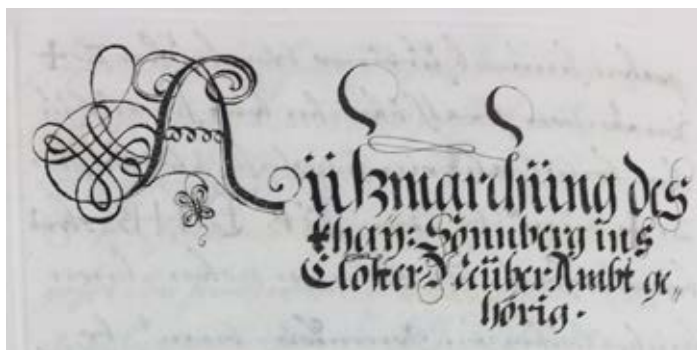 Aüßmarchüng des
Khaÿ: Sonnberg ins
Closter Neüber Ambt ge„
hörig.